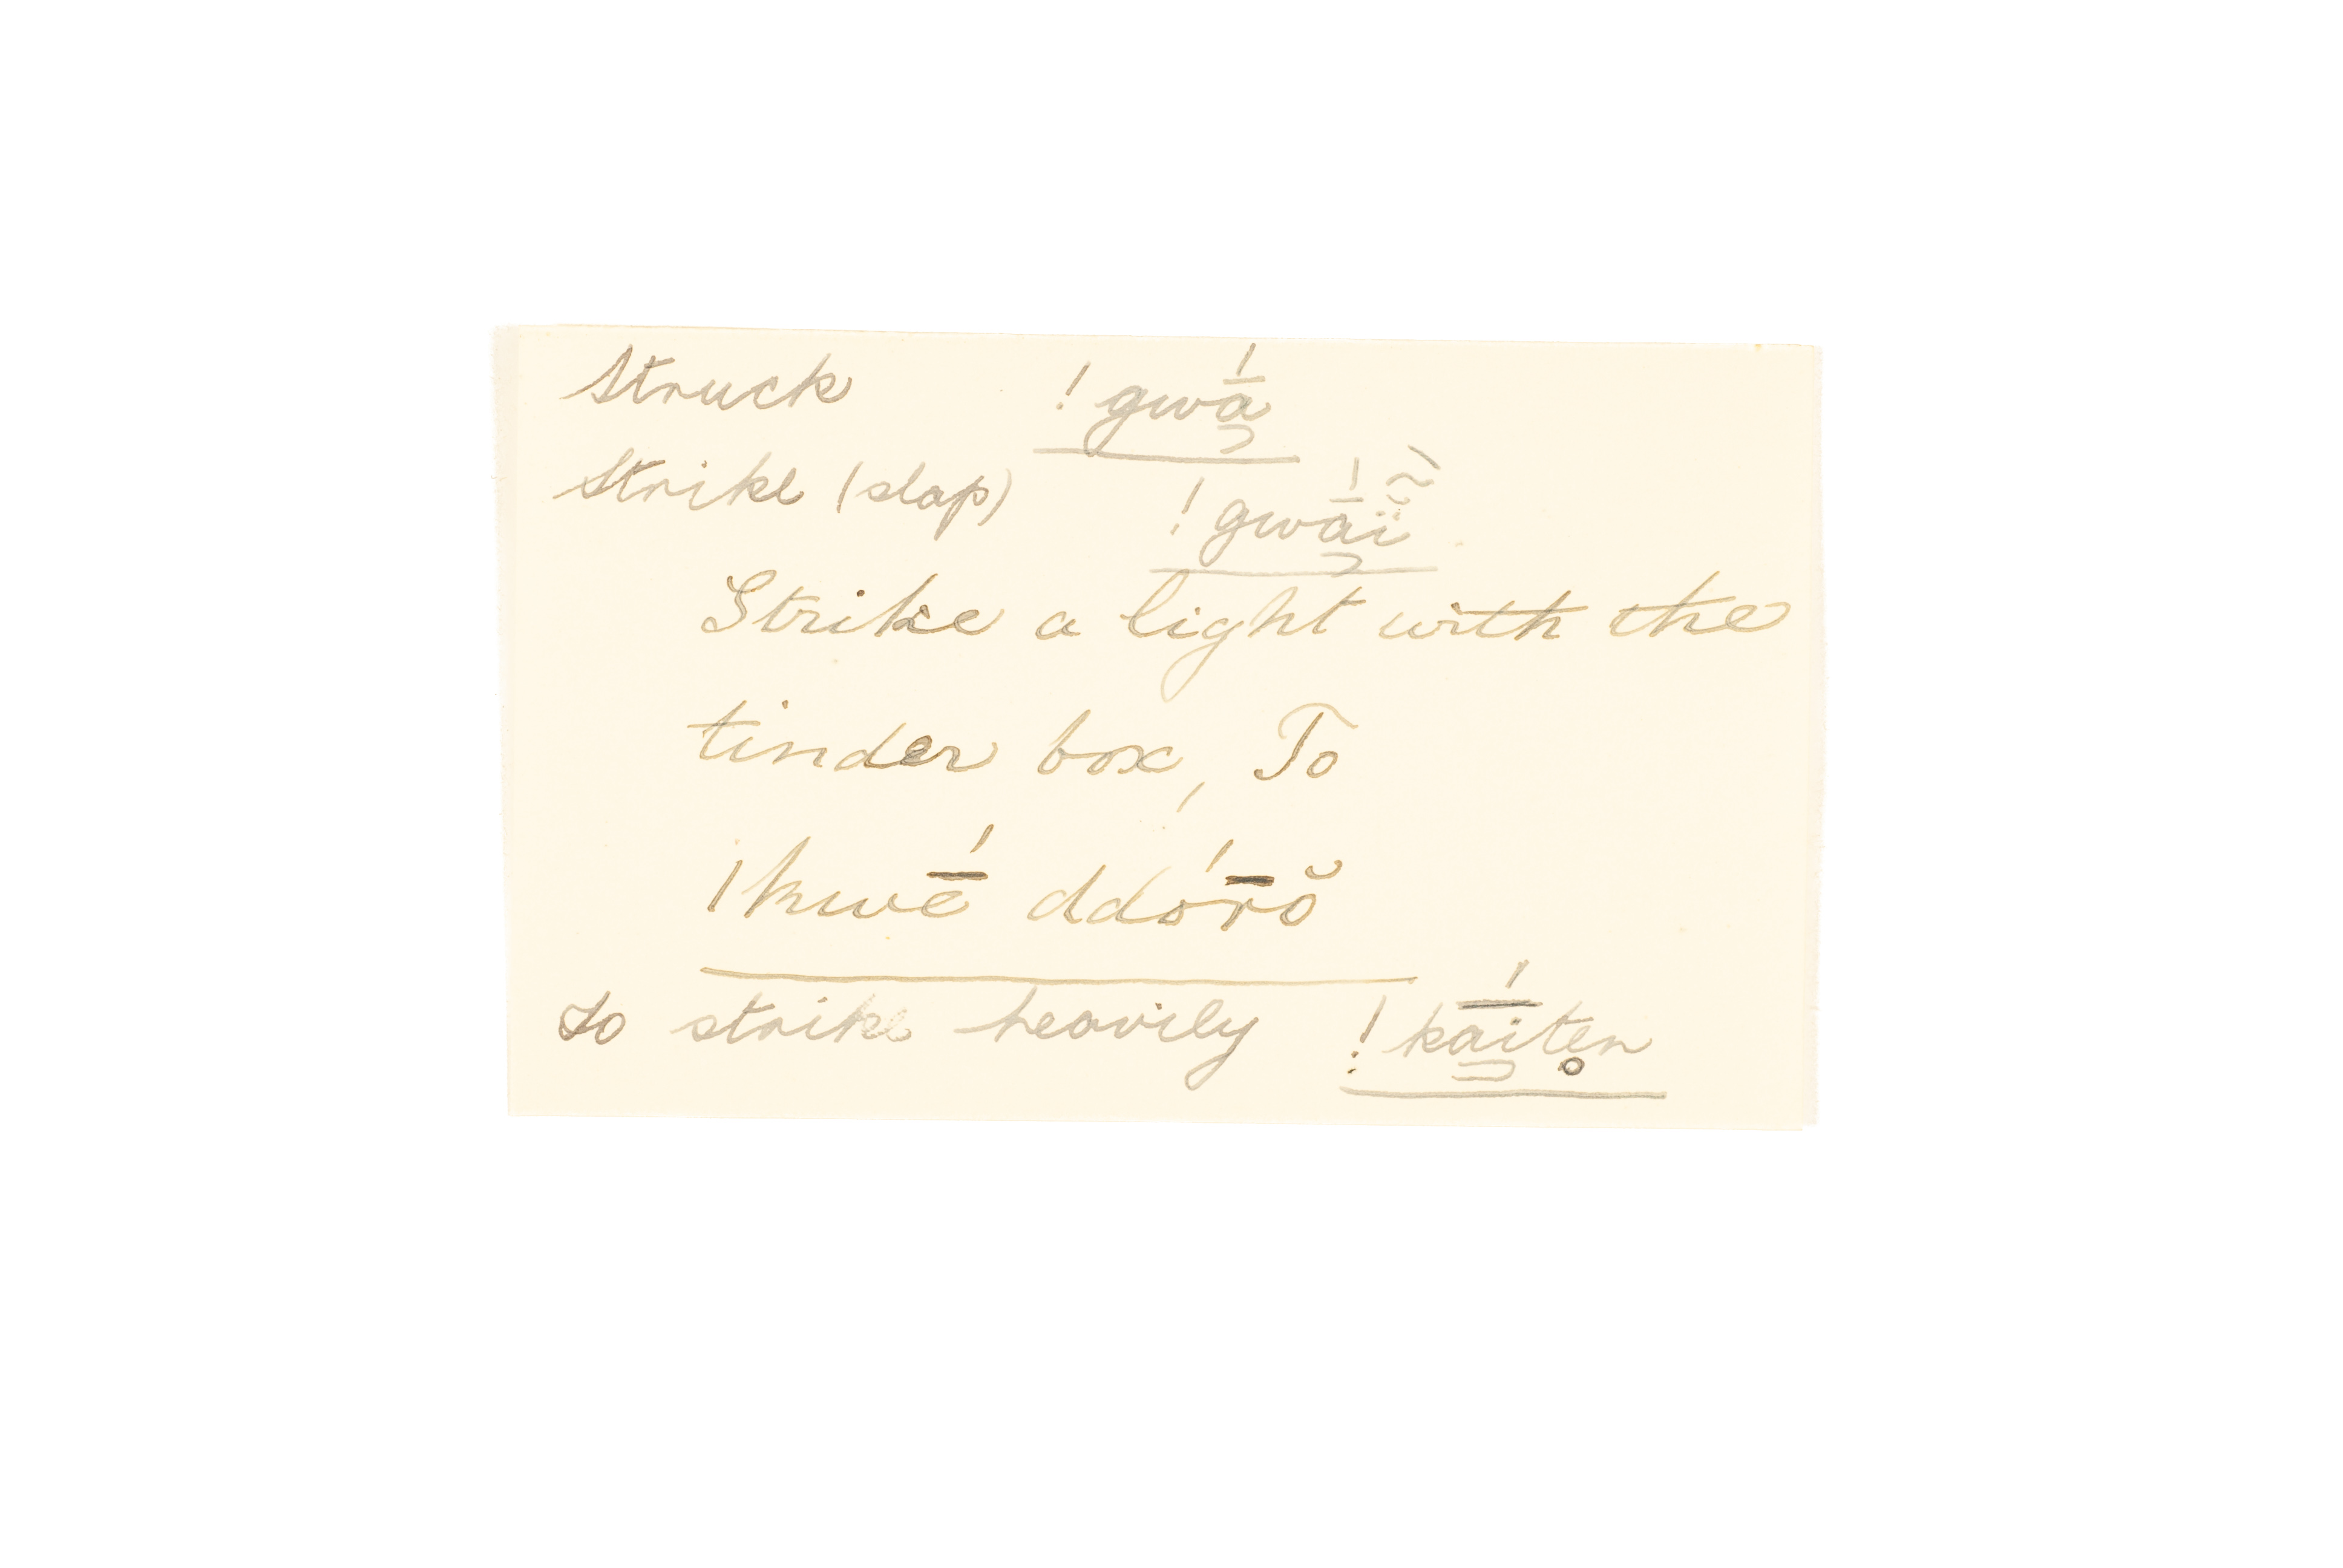 Struck !gwā́
Strike (slap) !gwā́ĩ̆
Strike a light with the
tinder box, To
|hwḗ ddórṓ̆
to strike heavily !kā́ïten̥